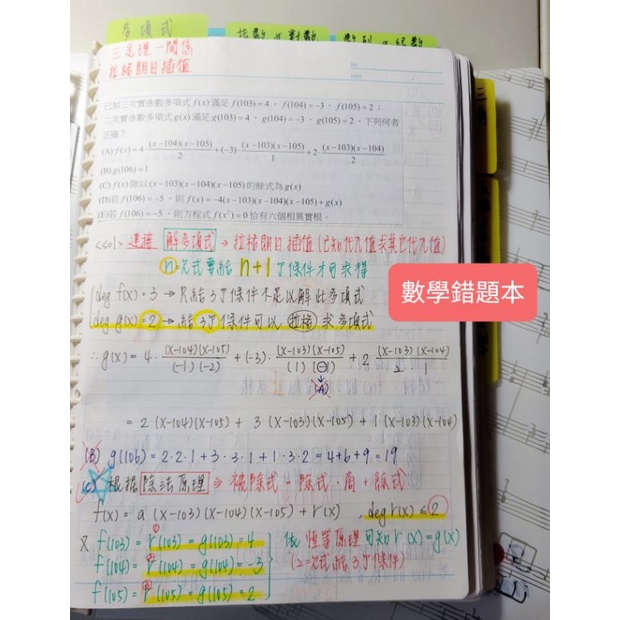 多項式
指數與對數
數列與級數
三定理一關係
拉格朗日插值
已知三次實係數多項式 f(x) 滿足 f(103)=4，f(104)=-3，f(105)=2；
二次實係數多項式 g(x) 滿足 g(103)=4，g(104)=-3，g(105)=2，下列何者
正確？
(A) f(x)=4·(x-104)(x-105)/2+(-3)·(x-103)(x-105)/1+2·(x-103)(x-104)/2
(B) g(106)=1
(C) f(x) 除以 (x-103)(x-104)(x-105) 的餘式為 g(x)
(D) 若 f(106)=-5，則 f(x)=-4(x-103)(x-104)(x-105)+g(x)
(E) 若 f(106)=-5，則方程式 f(x²)=0 恰有六個相異實根。
<sol> 連接 解多項式 → 拉格朗日插值 (已知代入值求其它代入值)
n次式要給 n+1 個條件才可求得
deg f(x)=3 → 只給3個條件不足以解此多項式
deg g(x)=2 → 給3個條件可以 拉格 求多項式
∴ g(x) = 4·(x-104)(x-105)/(-1)(-2) + (-3)·(x-103)(x-105)/(1)(-1) + 2·(x-103)(x-104)/2 1
(A)
= 2(x-104)(x-105) + 3(x-103)(x-105) + 1(x-103)(x-104)
(B) g(106) = 2·2·1 + 3·3·1 + 1·3·2 = 4+6+9 = 19
(C) 根據 除法原理 → 被除式 = 除式·商 + 餘式
f(x) = a(x-103)(x-104)(x-105) + r(x) , deg r(x) ≤ 2
又 f(103) = r(103) = g(103) = 4
f(104) = r(104) = g(104) = -3
f(105) = r(105) = g(105) = 2
依 恆等原理 可知 r(x) = g(x)
(二次式給3個條件)
數學錯題本